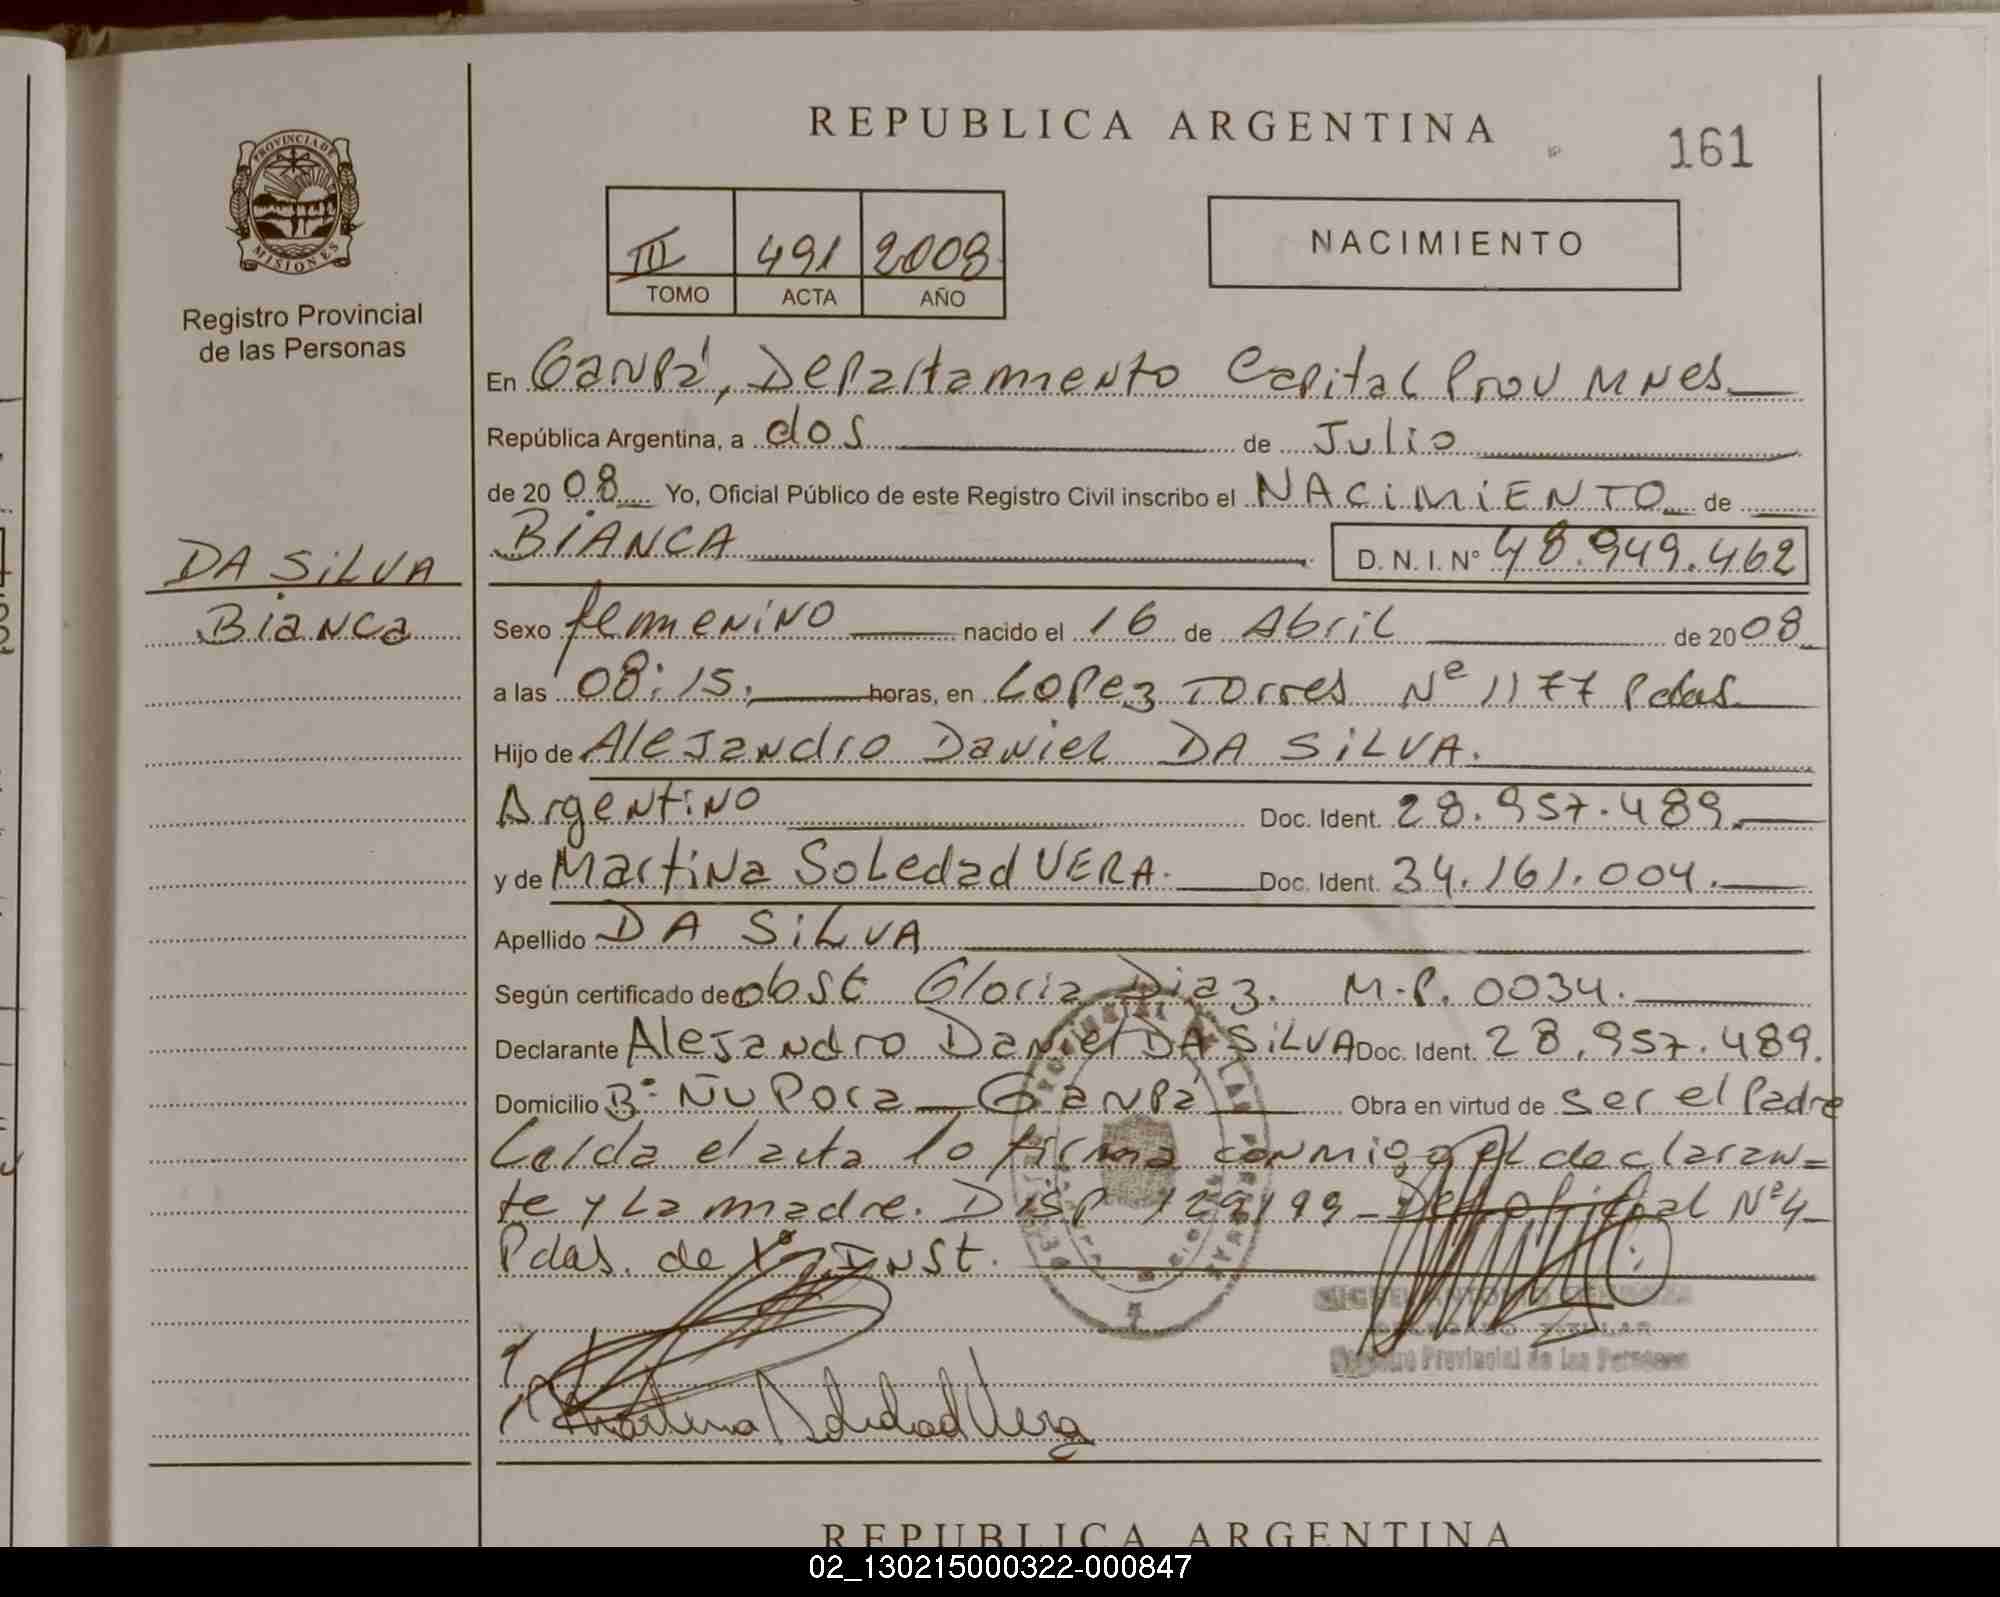 REPUBLICA ARGENTINA
161
PROVINCIA DE
MISIONES
Registro Provincial
de las Personas
III 491 2008
TOMO ACTA AÑO
NACIMIENTO
En Garupá, Departamento Capital Prov Mnes
República Argentina, a dos de Julio
de 20 08 Yo, Oficial Público de este Registro Civil inscribo el NACIMIENTO de
BIANCA D. N. I. Nº 48.949.462
DA SILVA
Bianca
Sexo femenino nacido el 16 de Abril de 20 08
a las 08:15. horas, en Lopez Torres Nº 1177 Pdas.
Hijo de Alejandro Daniel DA SILVA.
Argentino Doc. Ident. 28.957.489.
y de Martina Soledad VERA. Doc. Ident. 34.161.004.
Apellido DA SILVA
Según certificado de obst Gloria Diaz. M.P. 0034.
Declarante Alejandro Daniel DA SILVA Doc. Ident. 28.957.489.
Domicilio Bº Ñu Pora - Garupá Obra en virtud de ser el Padre
Leida el acta lo firma conmigo el declaran=
te y la madre. Disp 129/99 - Nº 4 -
Pdas. de Inst.
TITULAR
Registro Provincial de las Personas
Martina Soledad Vera
REPUBLICA ARGENTINA
02_130215000322-000847